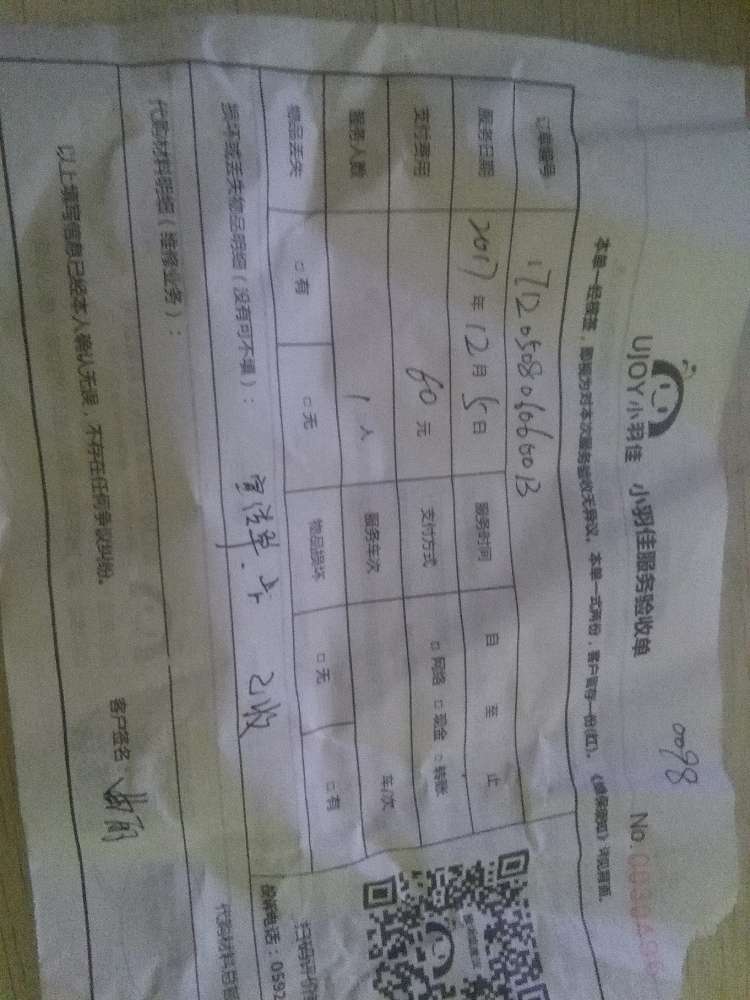 UJOY小羽佳 小羽佳服务验收单
0098
No.
本单一经签签，即视为对本次服务验收无异议，本单一式两份，客户留存一份(红)。《维保须知》详见背面。
订单编号 17120508066600B
服务日期 2017年12月5日 服务时间 自 至 止
支付费用 60元 支付方式 □网络 □现金 □转账
服务人数 1人 服务车次 车/次
物品丢失 □有 □无 物品损坏 □无 □有
损坏或丢失物品明细（没有可不填）： 已收
代购材料明细（维修业务）：
代购材料总
以上填写信息已经本人确认无误，不存在任何争议纠纷。
客户签名：
扫码评价
投诉电话：0592